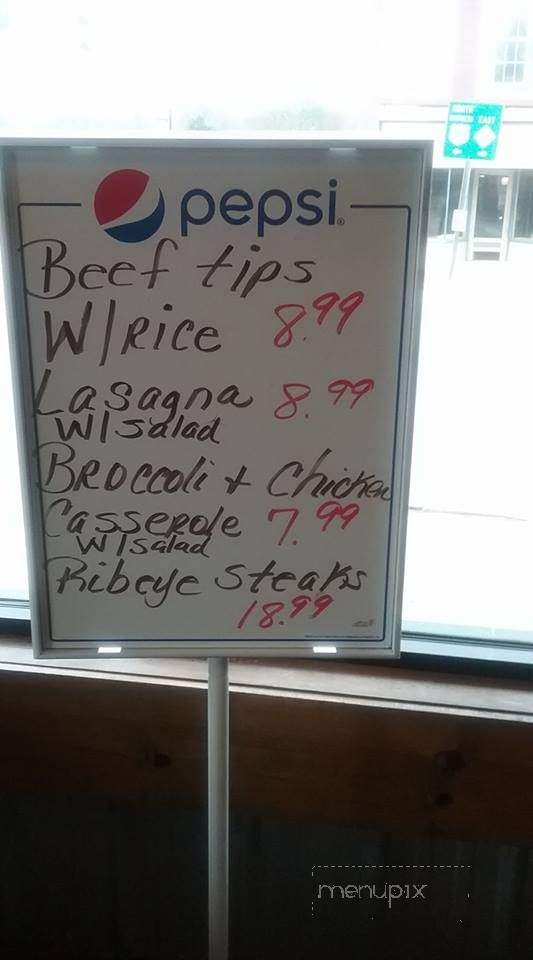 pepsi
Beef tips
W/Rice 8.99
Lasagna 8.99
W/Salad
Broccoli + Chicken
Casserole 7.99
W/Salad
Ribeye Steaks
18.99
EAST
menupix